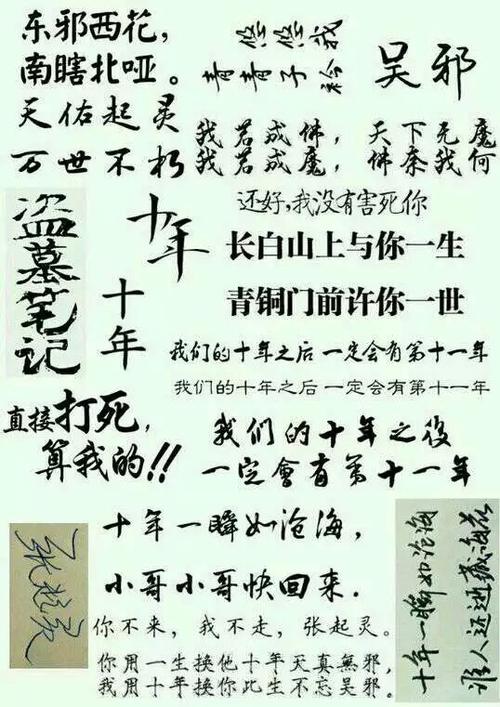 东邪西花，
南瞎北哑。
悠悠我
青青子衿
吴邪
天佑起灵
万世不朽
我若成佛，天下无魔
我若成魔，佛奈我何
盗墓笔记
十年
十年
还好，我没有害死你
长白山上与你一生
青铜门前许你一世
我们的十年之后一定会有第十一年
我们的十年之后一定会有第十一年
直接打死，
算我的!!
我们的十年之後
一定會有第十一年
张起灵
十年一瞬如沧海，
小哥小哥快回来.
你不来，我不走，张起灵。
你用一生换他十年天真無邪，
我用十年换你此生不忘吴邪。
十年一瞬如沧海
谁人还进藏海花